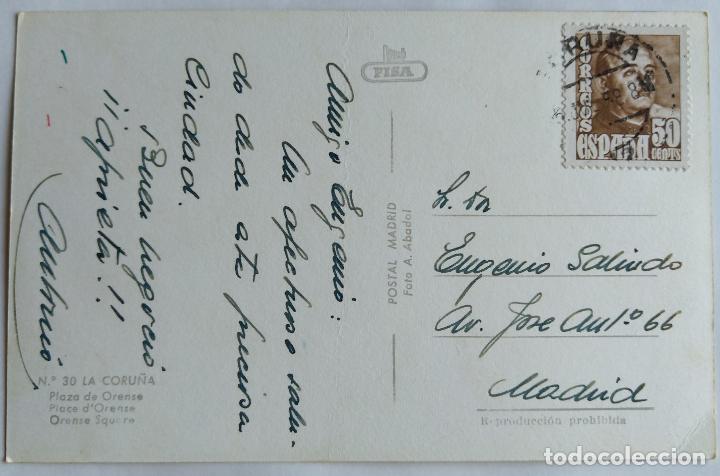 Amigo Eugenio:
Un afectuoso salu-
do desde esta preciosa
Ciudad.
¡Buen negocio
¡¡aprieta!!
Antonio
FISA
POSTAL MADRID
Foto A. Abadal
CORREOS
50
CENTS
ESPAÑA
Sr. Dn
Eugenio Salindo
Av. Jose Anlº 66
Madrid
N.º 30 LA CORUÑA
Plaza de Orense
Place d'Orense
Orense Square
Reproducción prohibida
todocoleccion.net